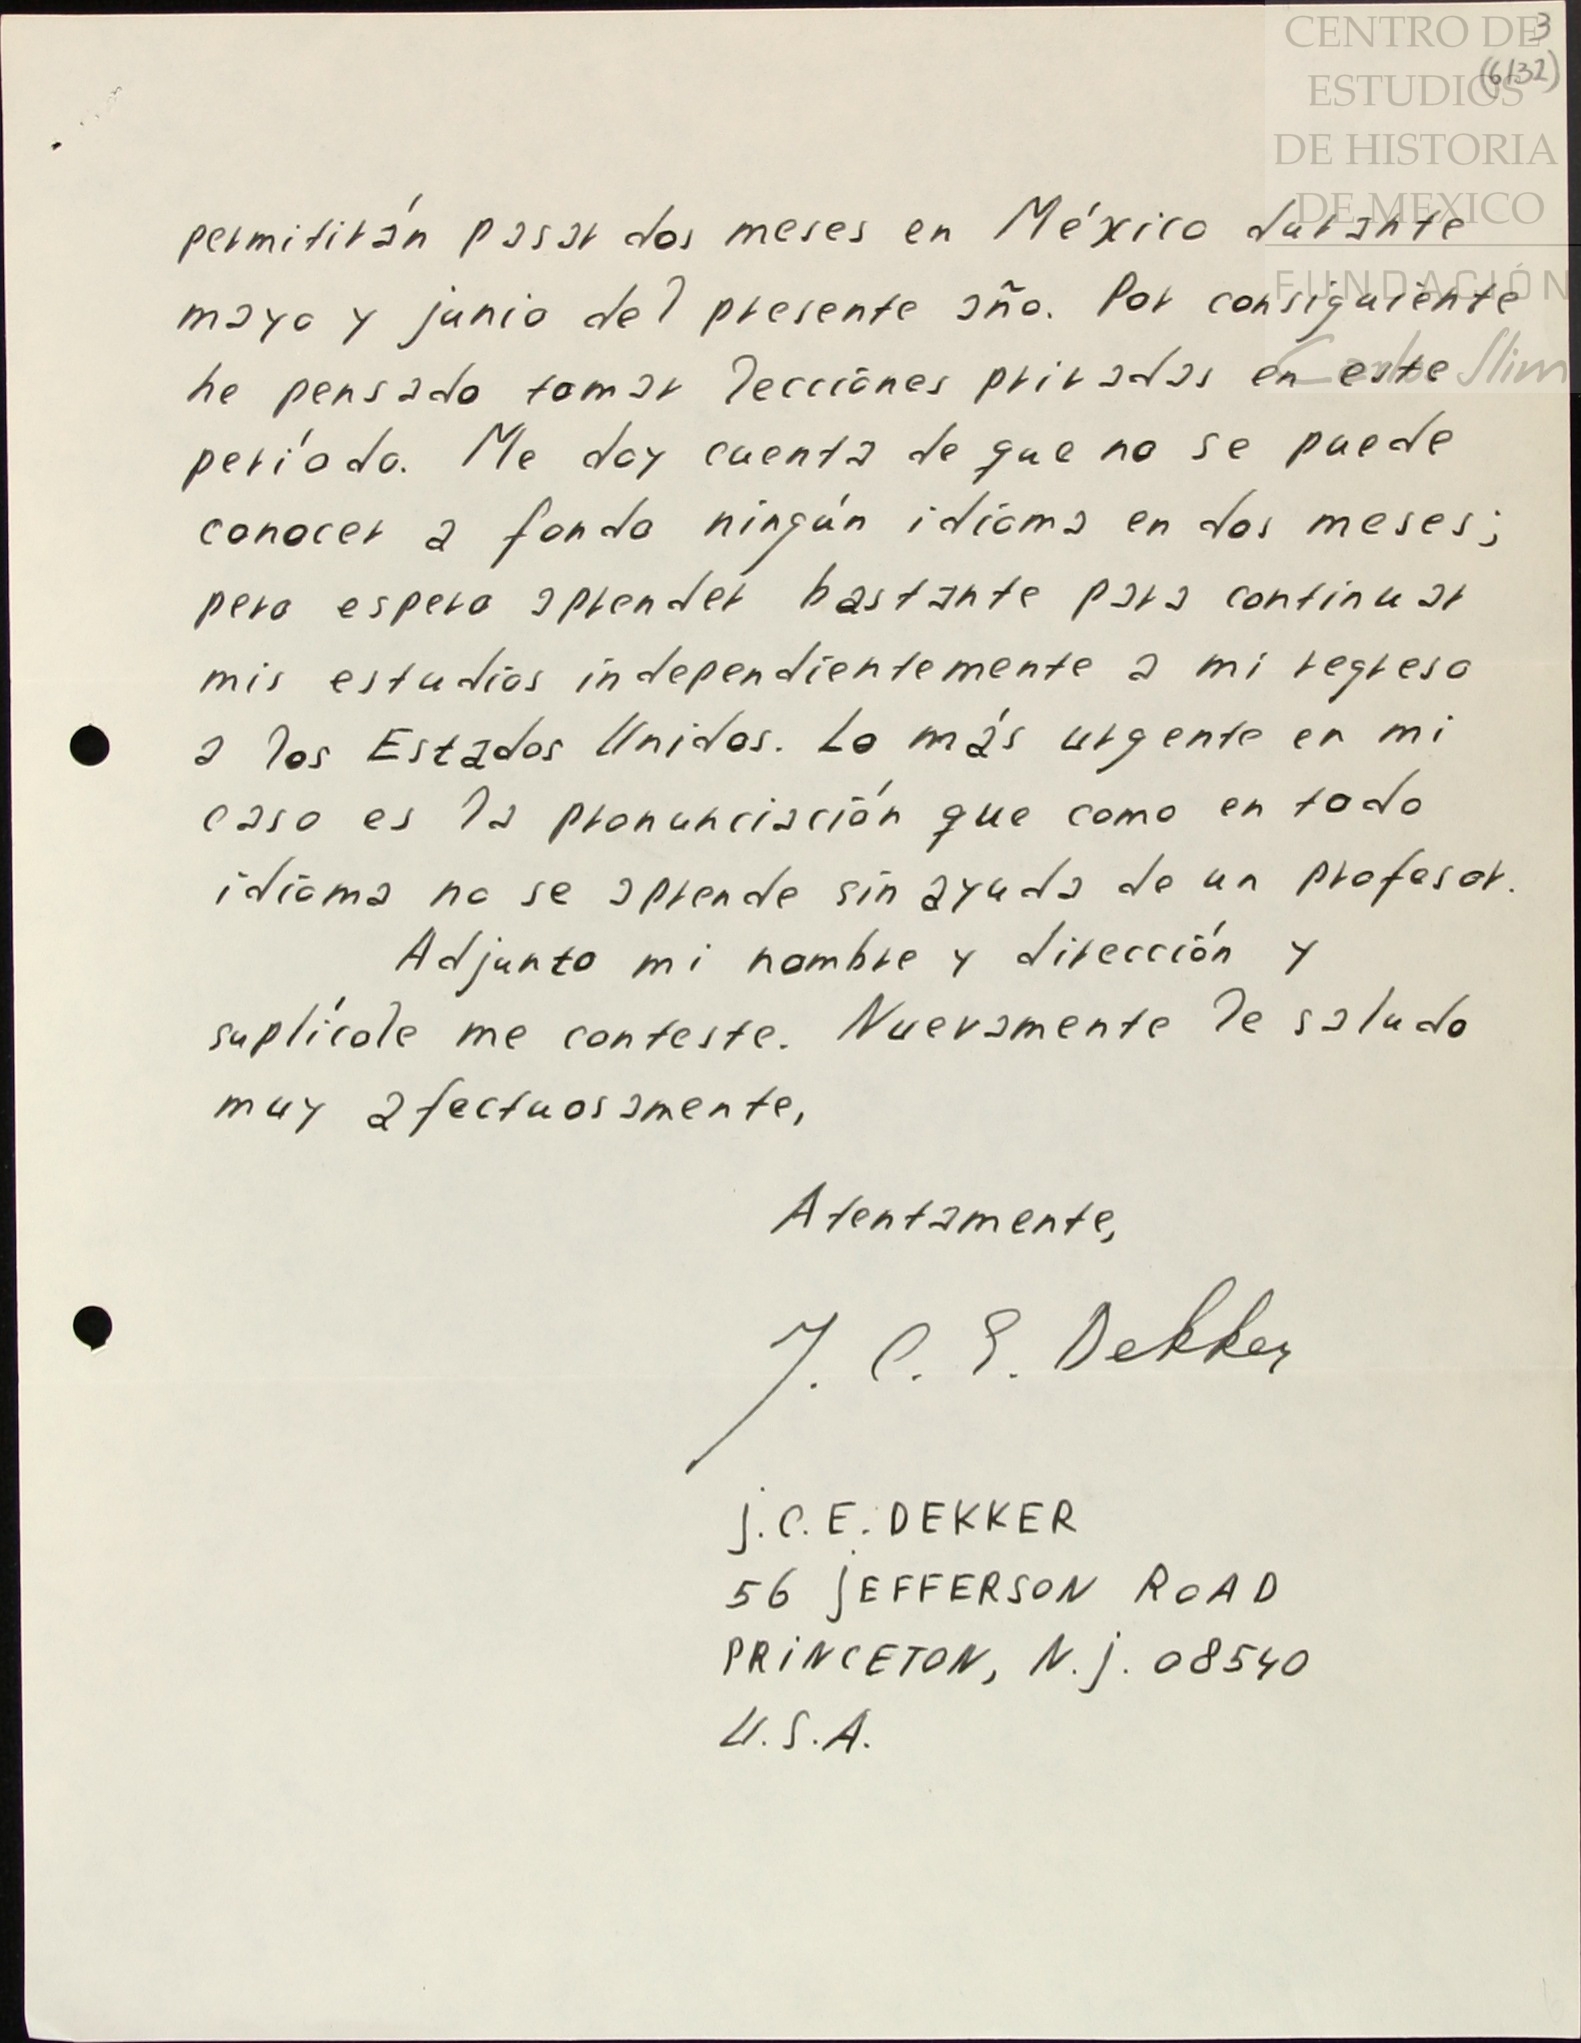 CENTRO DE
ESTUDIOS
DE HISTORIA
DE MEXICO
FUNDACIÓN
Carlos Slim
3
(6132)
permitirán pasar dos meses en México durante
mayo y junio del presente año. Por consiguiente
he pensado tomar lecciones privadas en este
período. Me doy cuenta de que no se puede
conocer a fondo ningún idioma en dos meses;
pero espero aprender bastante para continuar
mis estudios independientemente a mi regreso
a los Estados Unidos. Lo más urgente en mi
caso es la pronunciación que como en todo
idioma no se aprende sin ayuda de un profesor.
Adjunto mi nombre y dirección y
suplícole me conteste. Nuevamente le saludo
muy afectuosamente,
Atentamente,
J. C. E. Dekker
J.C.E. DEKKER
56 JEFFERSON ROAD
PRINCETON, N.J. 08540
U.S.A.